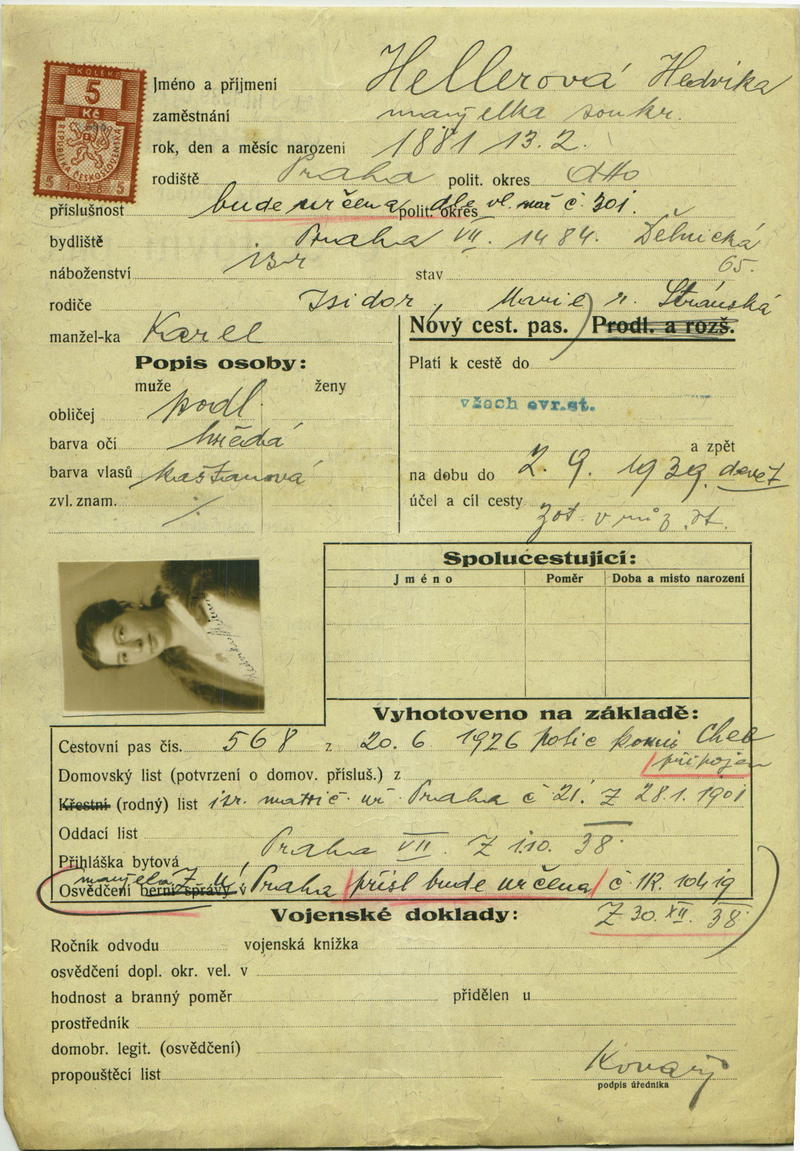 KOLEK
5
Kč
REPUBLIKA ČESKOSLOVENSKÁ
5 1938 5
Jméno a příjmení Hellerová Hedvika
zaměstnání manželka soukr.
rok, den a měsíc narození 1881 13.2.
rodiště Praha polit. okres dtto
příslušnost bude určena polit. okres dle vl. nař č. 301
bydliště Praha VII. 1484. Dělnická
65.
náboženství isr stav
rodiče Isidor, Marie r. Stránská
manžel-ka Karel
Nový cest. pas. Prodl. a rozš.
Popis osoby:
muže ženy
obličej podl.
barva očí hnědá
barva vlasů kaštanová
zvl. znam. ./.
Platí k cestě do
všech evr.st.
a zpět
na dobu do 2. 9. 1939
účel a cíl cesty
Spolucestující:
Jméno Poměr Doba a místo narození
Vyhotoveno na základě:
Cestovní pas čís. 568 z 20.6 1926 polic komis Cheb
připojen
Domovský list (potvrzení o domov. přísluš.) z
Křestní (rodný) list isr. matrič. úř. Praha č 21. Z 28.1. 1901
Oddací list
Přihláška bytová Praha VII. Z 1.10. 38.
Osvědčení berní správy v manžela Z. Ú. Praha přísl bude určena č
Z 30. XII. 38
Vojenské doklady:
Ročník odvodu vojenská knížka
osvědčení dopl. okr. vel. v
hodnost a branný poměr přidělen u
prostředník
domobr. legit. (osvědčení)
propouštěcí list
podpis úředníka